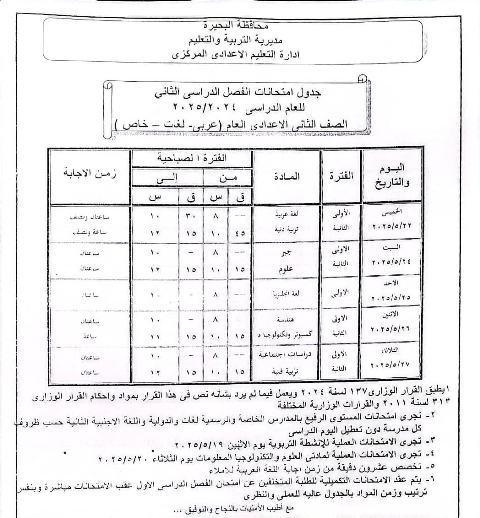 محافظة البحيرة
مديرية التربية والتعليم
ادارة التعليم الاعدادى المركزى
جدول امتحانات الفصل الدراسى الثاني
للعام الدراسى ٢٠٢٤/٢٠٢٥
الصف الثانى الاعدادى العام (عربى- لغت – خاص)
اليوم والتاريخ الفترة المادة الفترة الصباحية زمن الاجابة
من الى
ق س ق س
الخميس ٢٠٢٥/٥/٢٢ الأولى لغة عربية -- ٨ ٣٠ ١٠ ساعتان ونصف
الثانية تربية دينية ٤٥ ١٠ ١٥ ١٢ ساعة ونصف
السبت ٢٠٢٥/٥/٢٤ الأولى جبر -- ٨ - ١٠ ساعتان
الثانية علوم ١٥ ١٠ ١٥ ١٢ ساعتان
الاحد ٢٠٢٥/٥/٢٥ الأولى لغة انجليزية -- ٨ - ١٠ ساعتان
الاثنين ٢٠٢٥/٥/٢٦ الأولى هندسة -- ٨ - ١٠ ساعتان
الثانية كمبيوتر وتكنولوجيا ١٥ ١٠ ١٥ ١١ ساعة
الثلاثاء ٢٠٢٥/٥/٢٧ الأولى دراسات اجتماعية -- ٨ - ١٠ ساعتان
الثانية تربية فنية ١٥ ١٠ ١٥ ١٢ ساعتان
١يطبق القرار الوزارى١٣٧ لسنة ٢٠٢٤ ويعمل فيما لم يرد بشأنه نص فى هذا القرار بمواد واحكام القرار الوزارى
٣١٣ لسنة ٢٠١١ والقرارات الوزارية المختلفة
٢- تجرى امتحانات المستوى الرفيع بالمدارس الخاصة والرسمية لغات والدولية واللغة الاجنبية الثانية حسب ظروف
كل مدرسة دون تعطيل اليوم الدراسى
٣- تجرى الامتحانات العملية للإنشطة التربوية يوم الاثنين ٢٠٢٥/٥/١٩
٤- تجرى الامتحانات العملية لمادتى العلوم والتكنولوجيا المعلومات يوم الثلاثاء ٢٠٢٥/٥/٢٠
٥- تخصص عشرون دقيقة من زمن اجابة اللغة العربية للاملاء
٦- يتم عقد الامتحانات التكميلية للطلبة المتخلفين عن امتحان الفصل الدراسى الاول عقب الامتحانات مباشرة وبنفس
ترتيب وزمن المواد بالجدول عاليه للعملى والنظرى
مع اطيب الأمنيات بالنجاح والتوفيق ...